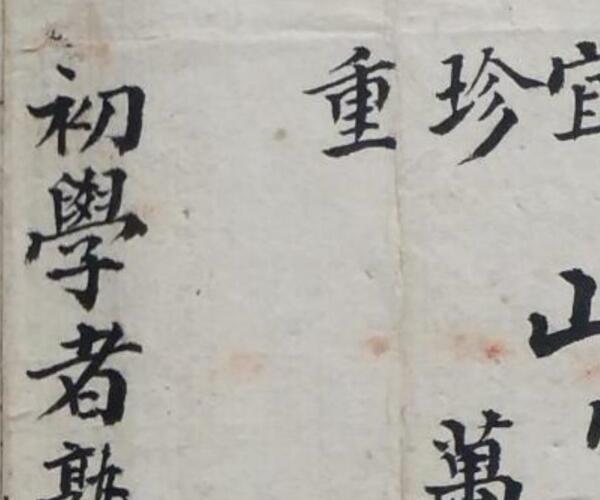 宜山
珍萬
重
初學者